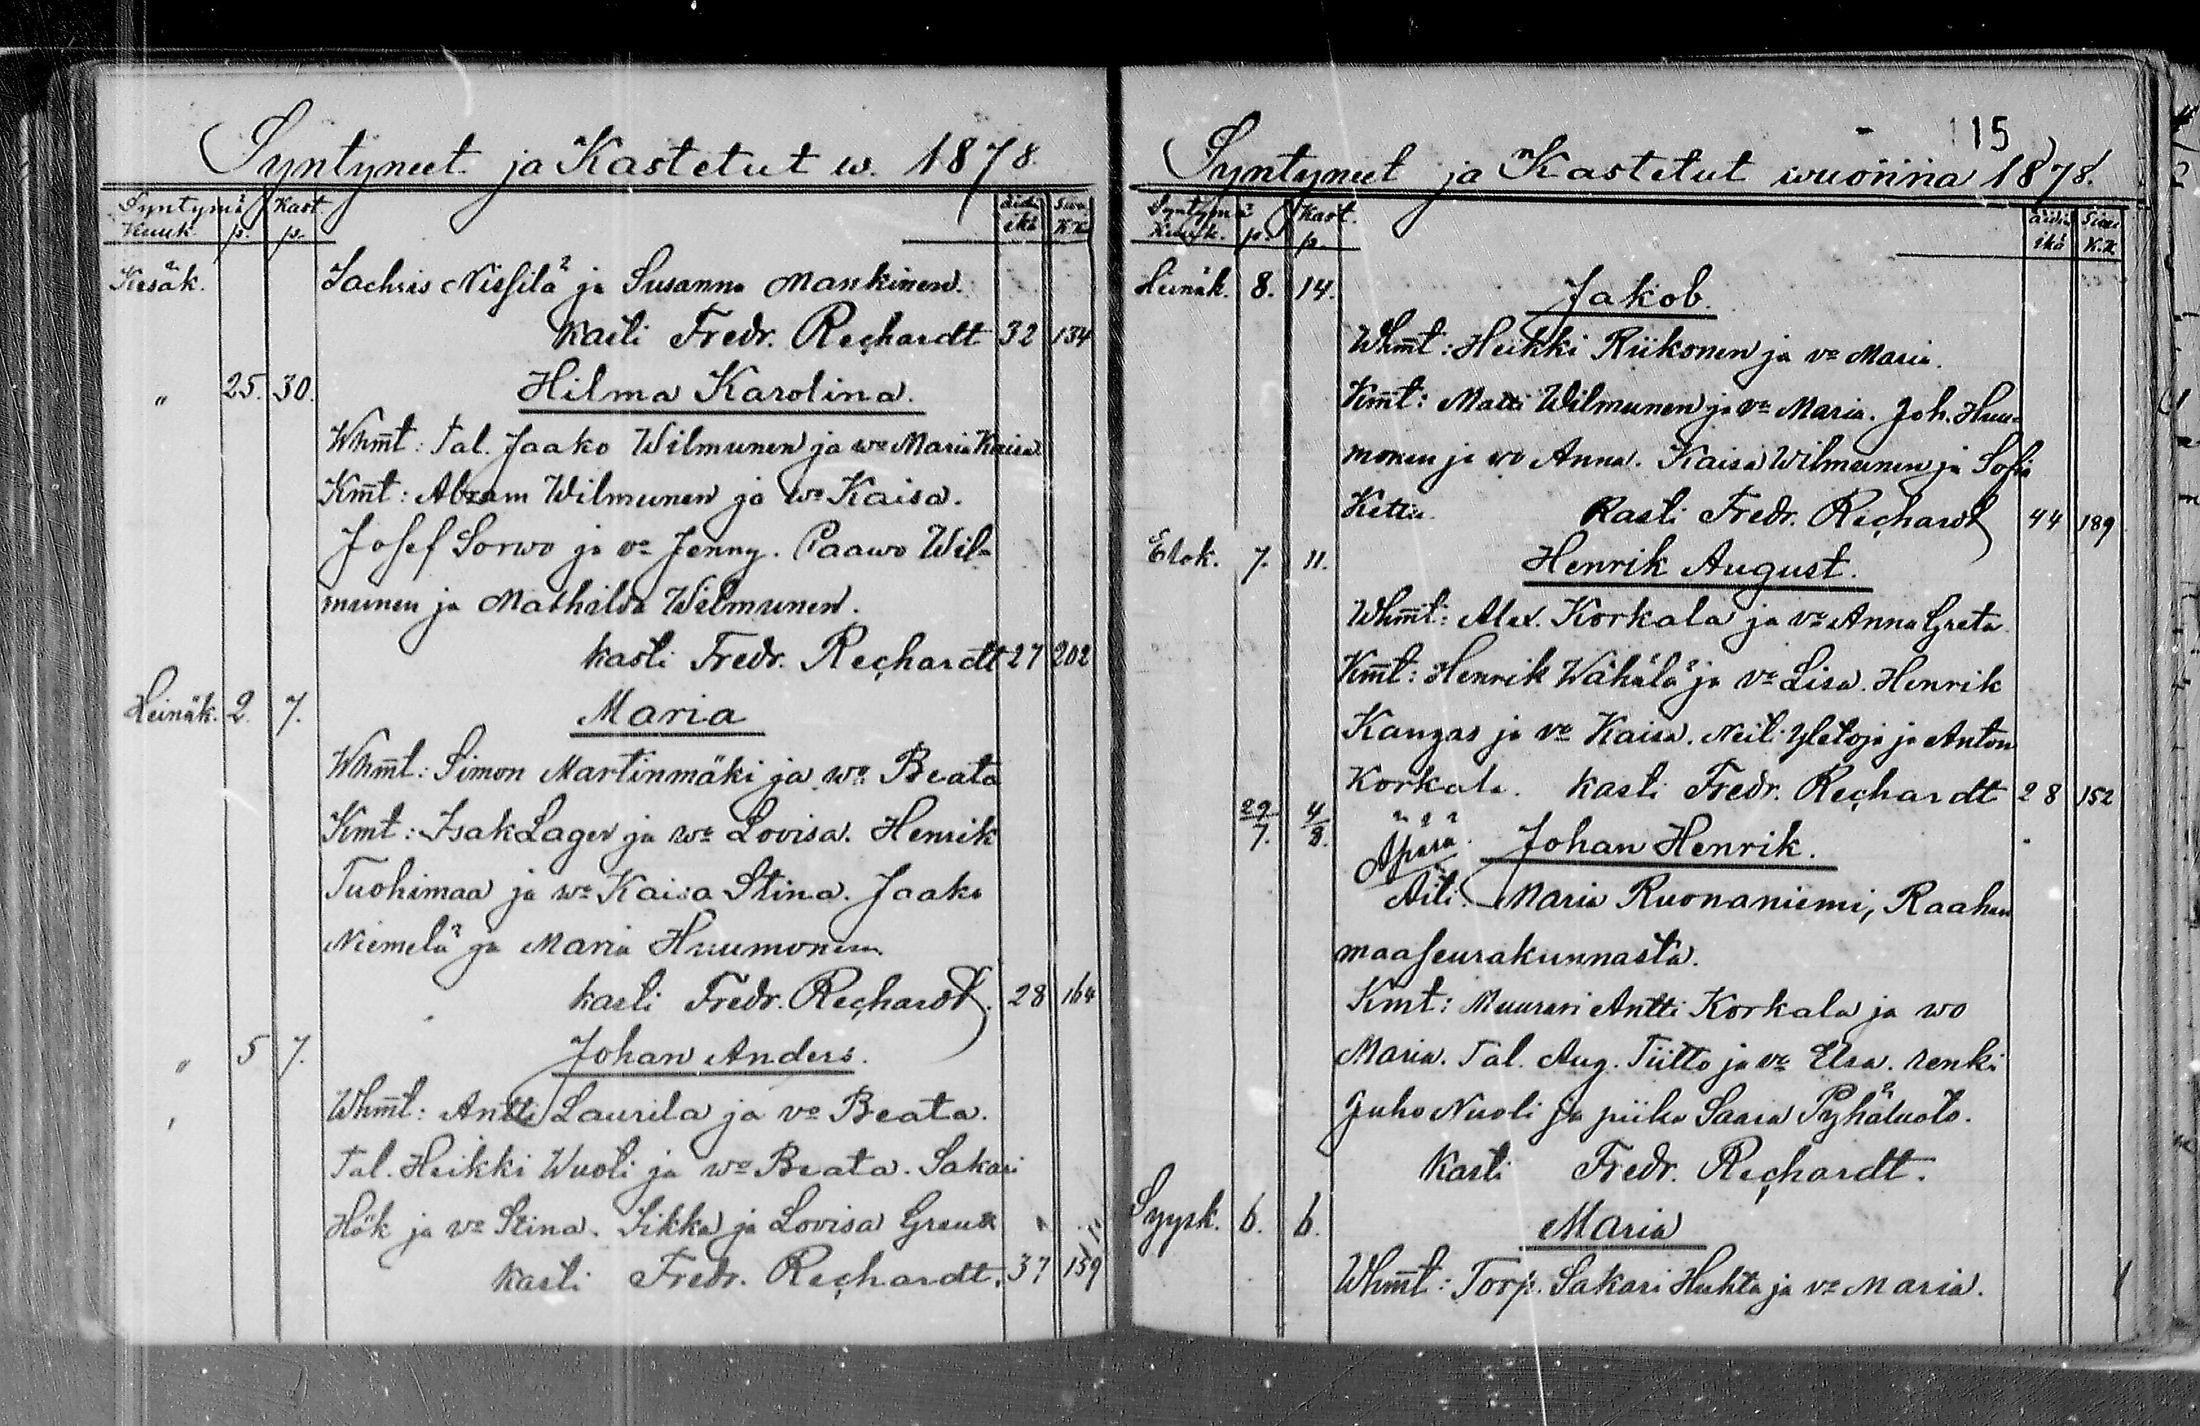 Syntyneet ja Kastetut w. 1878.
Syntymä Kast. äidin Siwu
Kuuk. p. p. ikä K.K.
Kesäk. Sachris Nissilä ja Susanna Mankinen.
kasti Fredr. Rechardt 32 134
" 25. 30. Hilma Karolina.
Whmt: Tal. Jaako Wilmunen ja wo Maria Kaisa
Kmt: Abram Wilmunen ja wo Kaisa.
Josef Sorwo ja vo Jenny. Paawo Wil-
munen ja Mathilda Wilmunen.
kasti Fredr. Rechardt 27 202
Heinäk. 2. 7. Maria
Whmt: Simon Martinmäki ja wo Beata
Kmt: Isak Lager ja wo Lovisa. Henrik
Tuohimaa ja wo Kaisa Stina. Jaako
Niemelä ja Maria Huumonen
kasti Fredr. Rechardt. 28 164
" 5 7. Johan Anders.
Whmt: Antti Laurila ja vo Beata.
Tal. Heikki Wuoti ja wo Beata. Sakari
Hök ja vo Stina. Sikka ja Lovisa
kasti Fredr. Rechardt. 37 159
15
Syntyneet ja Kastetut wuonna 1878.
Syntymä Kast. äidin Siwu
Kuuk. p. p. ikä K.K.
Heinäk. 8. 14. Jakob.
Whmt: Heikki Riikonen ja vo Maria.
Kmt: Matti Wilmunen ja vo Maria. Joh. Huu-
monen ja wo Anna. Kaisa Wilmunen ja Sofia
Kettu. Kasti Fredr. Rechardt 44 189
Elok. 7. 11. Henrik August.
Whmt: Alex. Korkala ja vo Anna Greta.
Kmt: Henrik Wähälä ja vo Lisa. Henrik
Kangas ja vo Kaisa. Neit. Yletoja ja Anton
Korkala. kasti Fredr. Rechardt 28 152
29/7. 4/8. Äpärä. Johan Henrik.
Äiti. Maria Ruonaniemi, Raahen
maaseurakunnasta.
Kmt: Muurari Antti Korkala ja wo
Maria. Tal. Aug. Tiitto ja vo Elsa. renki
Juho Nuoli ja piika Saara Pyhäluoto.
Kasti Fredr. Rechardt.
Syysk. 6. 6. Maria
Whmt: Torp. Sakari Huhta ja vo Maria.